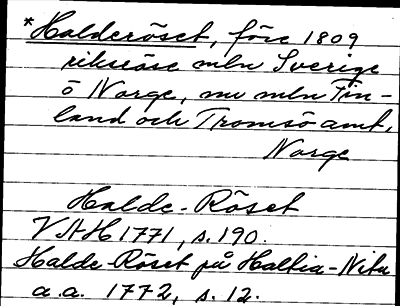 *Halderöset, före 1809
riksröse mln Sverige
o Norge, nu mln Fin-
land och Tromsö amt,
Norge
Halde-Röset
VAH 1771, s. 190.
Halde-Röset på Haltia-
a.a. 1772, s. 12.